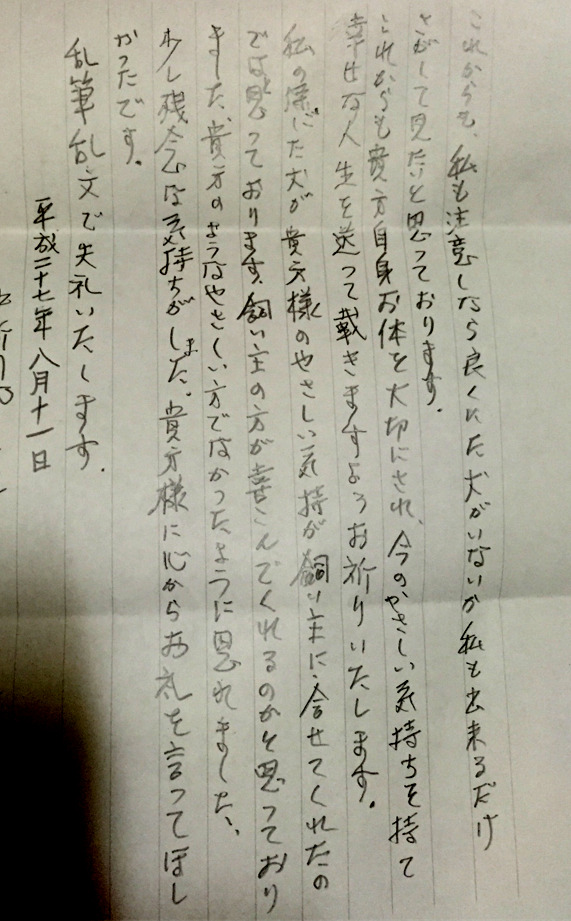 これからも、私も注意しながら良くにた犬がいないか私も出来るだけ
さがして見たいと思っております。
これからも貴方自身お体を大切にされ、今のやさしい気持ちを持て
幸せな人生を送って戴きますようお祈りいたします。
私の様にだ犬が貴方様のやさしい気持が飼い主に合せてくれたの
ではと思っております。飼い主の方が喜こんでくれるのかと思っており
ました、貴方のようなやさしい方ではなかったように思れました、
少し残念な気持ちがしました。貴方様に心からお礼を言ってほし
かったです。
乱筆乱文で失礼いたします。
平成二十七年八月十一日